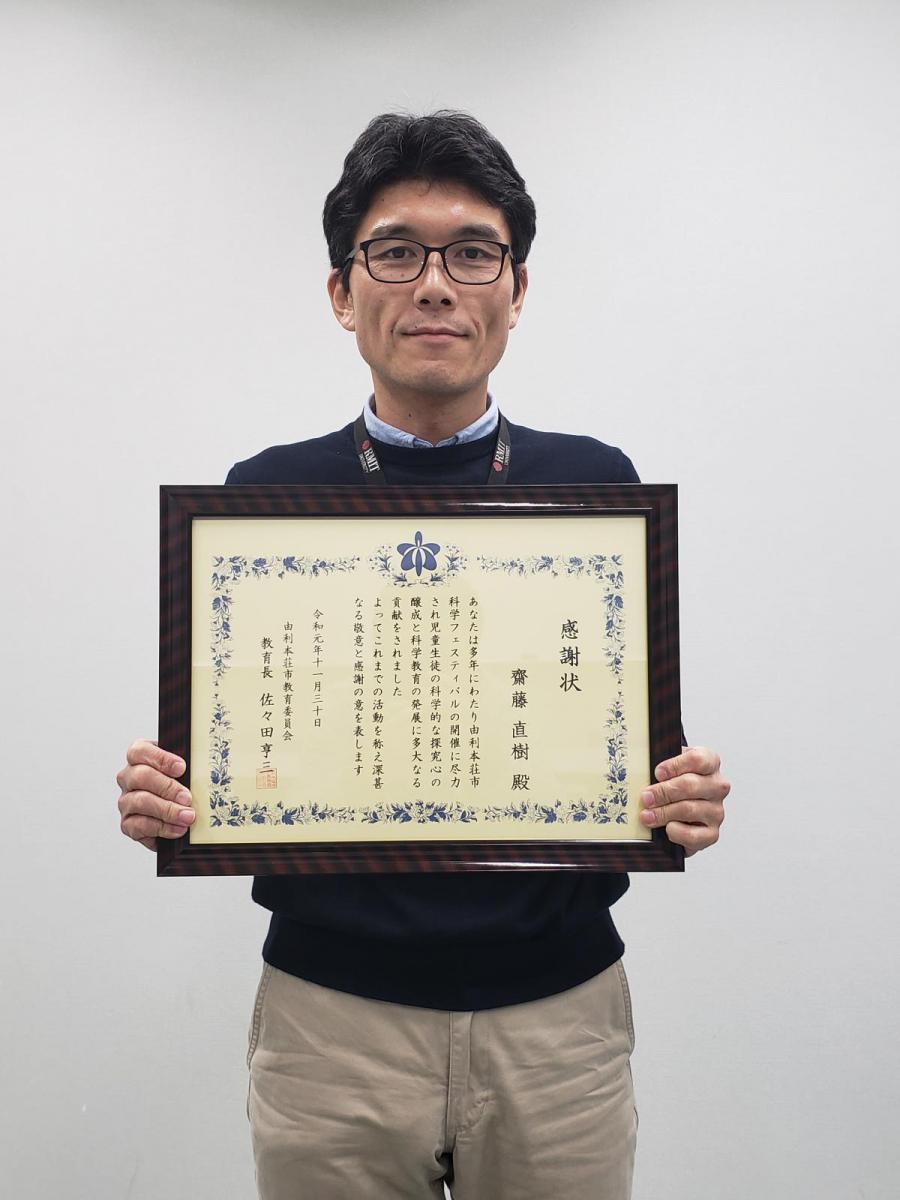 RMIT
UNIVERSITY
RMIT
UNIVERSITY
感謝状
齋藤 直樹 殿
あなたは多年にわたり由利本荘市
科学フェスティバルの開催に尽力
され児童生徒の科学的な探究心の
醸成と科学教育の発展に多大なる
貢献をされました
よってこれまでの活動を称え深甚
なる敬意と感謝の意を表します
令和元年十一月三十日
由利本荘市教育委員会
教育長 佐々田 亨三